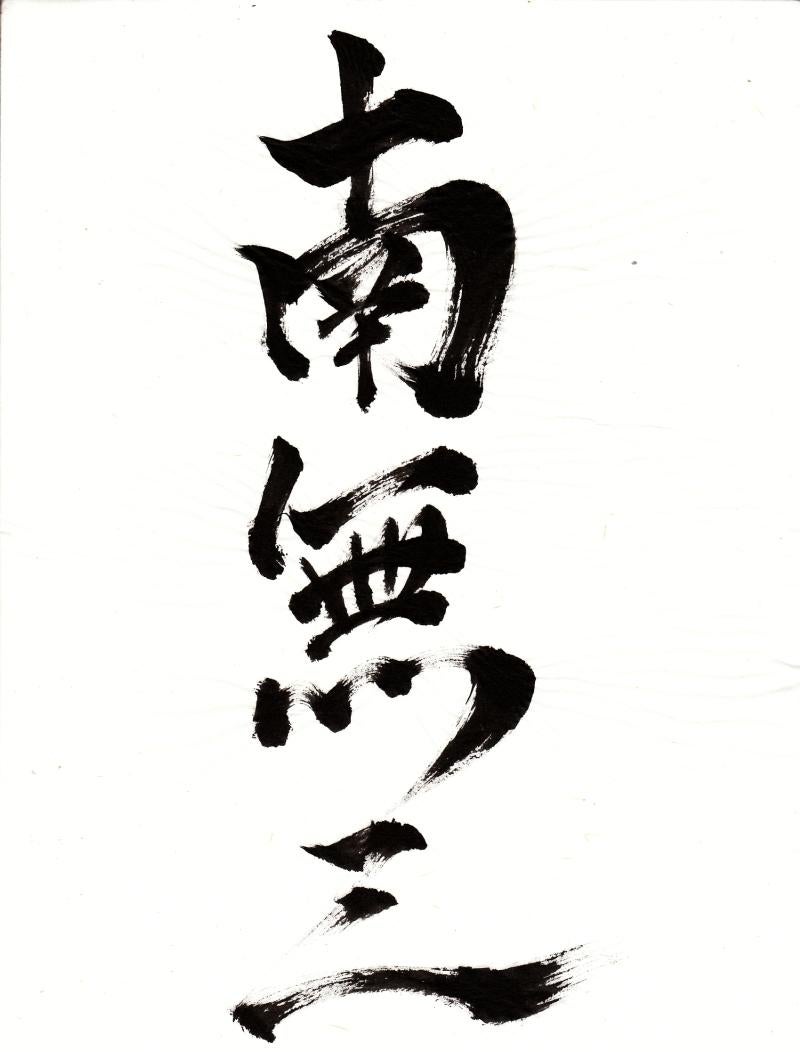 南無三